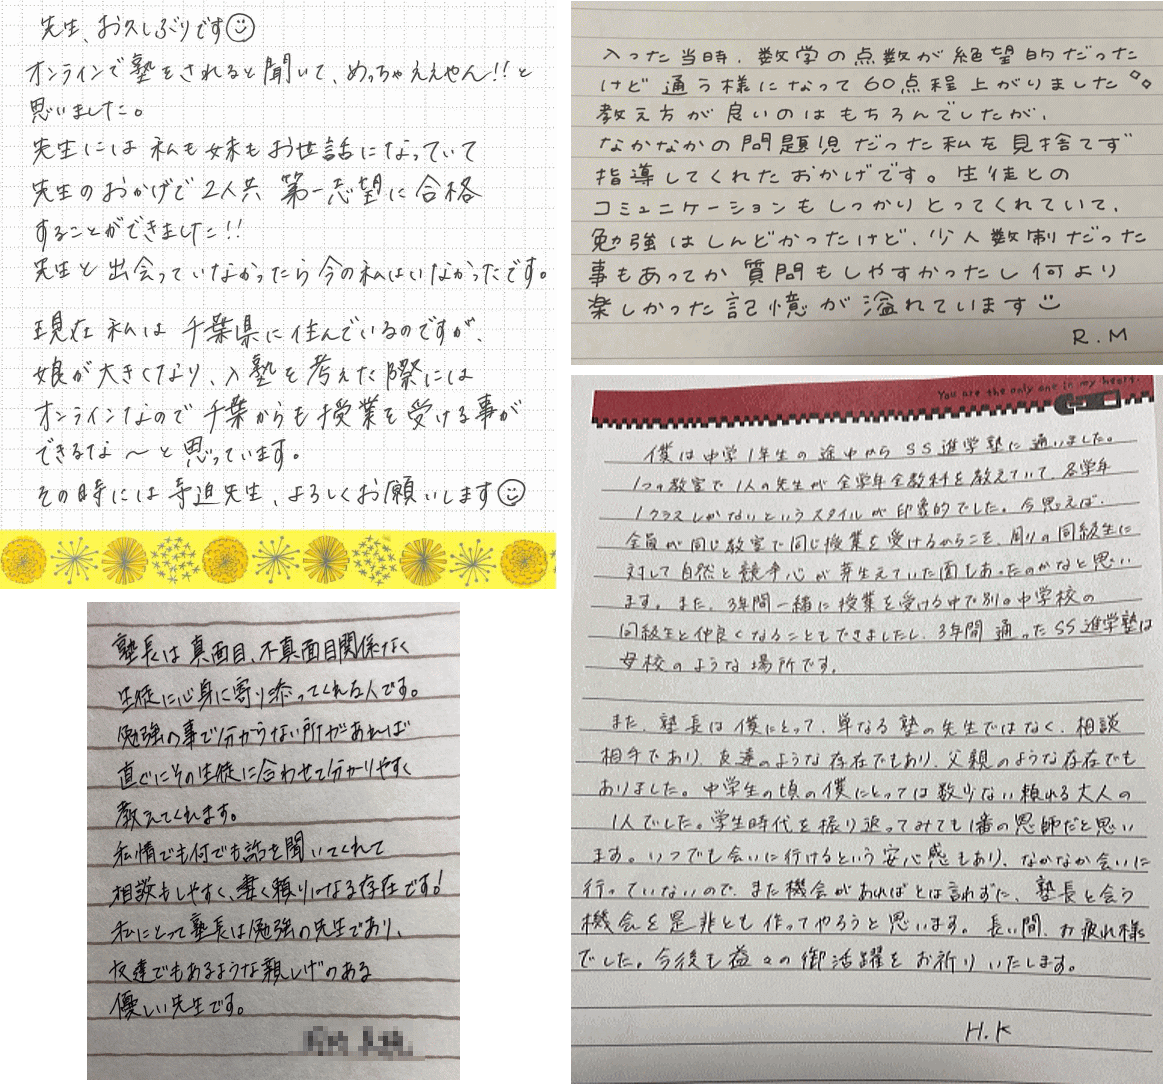 先生、お久しぶりです
オンラインで塾をされると聞いて、めっちゃええやん!!と
思いました。
先生には私も妹もお世話になっていて
先生のおかげで2人共 第一志望に合格
することができました!!
先生と出会っていなかったら今の私はいなかったです。
現在私は千葉県に住んでいるのですが、
娘が大きくなり、入塾を考えた際には
オンラインなので千葉からも授業を受ける事が
できるな〜と思っています。
その時には寺迫先生、よろしくお願いします
入った当時、数学の点数が絶望的だった
けど通う様になって60点程上がりました
教え方が良いのはもちろんでしたが、
なかなかの問題児だった私を見捨てず
指導してくれたおかげです。生徒との
コミュニケーションもしっかりとってくれていて、
勉強はしんどかったけど、少人数制だった
事もあってか質問もしやすかったし何より
楽しかった記憶が溢れています
R.M
塾長は真面目、不真面目関係なく
生徒に心身に寄り添ってくれる人です。
勉強の事で分からない所があれば
直ぐにその生徒に合わせて分かりやすく
教えてくれます。
私情でも何でも話を聞いてくれて
相談もしやすく、凄く頼りになる存在です!
私にとって塾長は勉強の先生であり、
友達でもあるような親しげのある
優しい先生です。
You are the only one in my heart.
僕は中学1年生の途中からSS進学塾に通いました。
1つの教室で1人の先生が全学年全教科を教えていて、各学年
1クラスしかないというスタイルが印象的でした。今思えば、
全員が同じ教室で同じ授業を受けるからこそ、周りの同級生に
対して自然と競争心が芽生えていた面もあったのかなと思い
ます。また、3年間一緒に授業を受ける中で別の中学校の
同級生と仲良くなることもできましたし、3年間通ったSS進学塾は
母校のような場所です。
また、塾長は僕にとって、単なる塾の先生ではなく、相談
相手であり、友達のような存在でもあり、父親のような存在でも
ありました。中学生の頃の僕にとっては数少ない頼れる大人の
1人でした。学生時代を振り返ってみても1番の恩師だと思い
ます。いつでも会いに行けるという安心感もあり、なかなか会いに
行っていないので、また機会があればとは言わずに、塾長と会う
機会を是非とも作ってやろうと思います。長い間、お疲れ様
でした。今後も益々の御活躍をお祈りいたします。
H.K